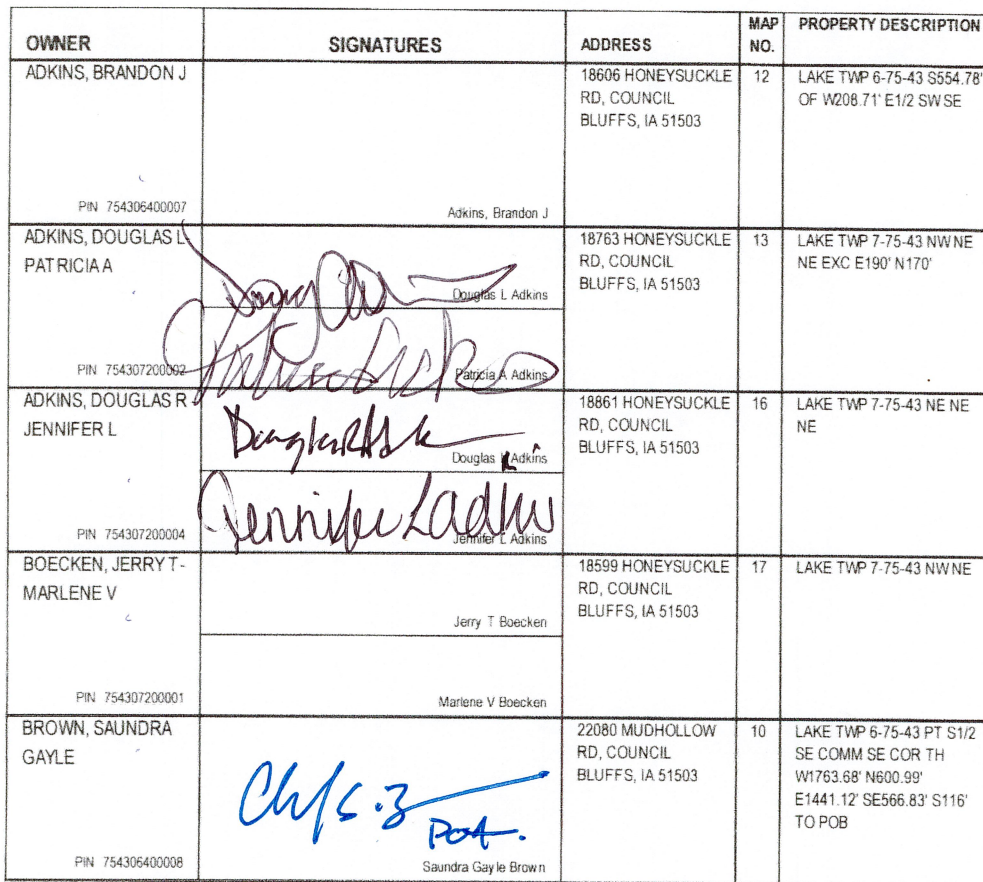 OWNER SIGNATURES ADDRESS MAP NO. PROPERTY DESCRIPTION
ADKINS, BRANDON J
PIN 754306400007
Adkins, Brandon J
18606 HONEYSUCKLE
RD, COUNCIL
BLUFFS, IA 51503
12
LAKE TWP 6-75-43 S554.78'
OF W208.71' E1/2 SW SE
ADKINS, DOUGLAS L
PATRICIA A
PIN 754307200002
Doug Adkins
Douglas L Adkins
Patricia Adkins
Patricia A Adkins
18763 HONEYSUCKLE
RD, COUNCIL
BLUFFS, IA 51503
13
LAKE TWP 7-75-43 NW NE
NE EXC E190' N170'
ADKINS, DOUGLAS R
JENNIFER L
PIN 754307200004
Douglas R Adkins
Douglas R Adkins
Jennifer L Adkins
Jennifer L Adkins
18861 HONEYSUCKLE
RD, COUNCIL
BLUFFS, IA 51503
16
LAKE TWP 7-75-43 NE NE
NE
BOECKEN, JERRY T-
MARLENE V
PIN 754307200001
Jerry T Boecken
Marlene V Boecken
18599 HONEYSUCKLE
RD, COUNCIL
BLUFFS, IA 51503
17
LAKE TWP 7-75-43 NW NE
BROWN, SAUNDRA
GAYLE
PIN 754306400008
POA.
Saundra Gayle Brown
22080 MUDHOLLOW
RD, COUNCIL
BLUFFS, IA 51503
10
LAKE TWP 6-75-43 PT S1/2
SE COMM SE COR TH
W1763.68' N600.99'
E1441.12' SE566.83' S116'
TO POB